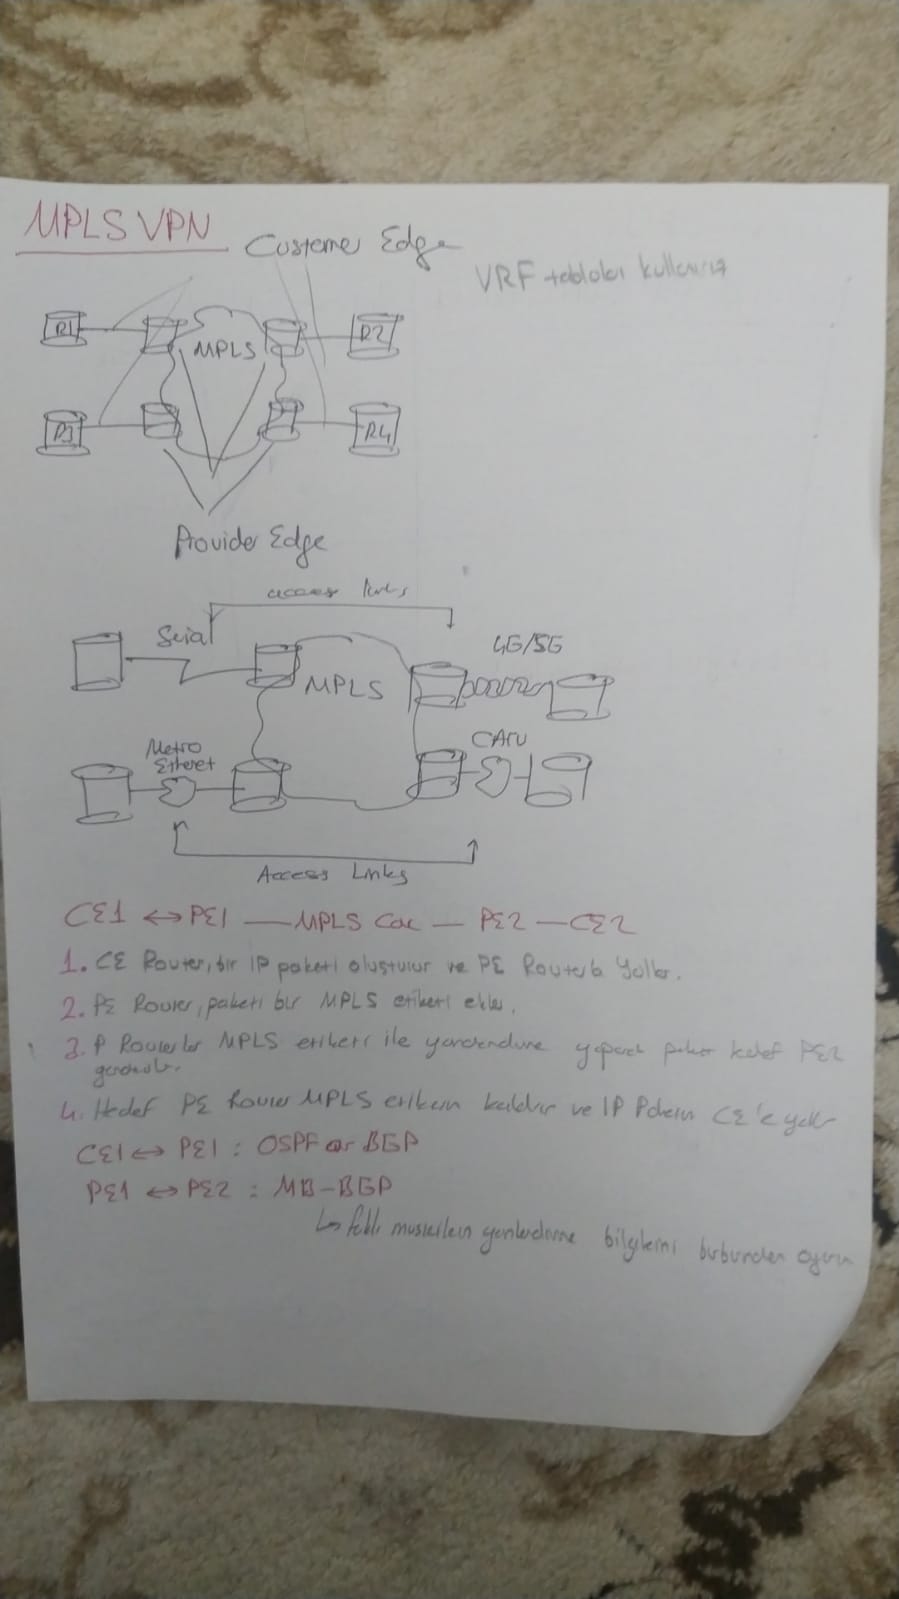 MPLS VPN
Customer Edge
VRF tabloları kullanırız
R1
MPLS
R2
R3
R4
Provider Edge
access links
Serial
4G/5G
MPLS
CATV
Metro
Etheret
Access Links
CE1 ↔ PE1 — MPLS Core — PE2 — CE2
1. CE Router, bir IP paketi oluşturur ve PE Router'a yollar.
2. PE Router, paketi bir MPLS etiketi ekler.
3. P Routerlar MPLS etiketi ile yönlendirme yaparak paket hedef PE2
gönderilir.
4. Hedef PE Router MPLS etiketin kaldırır ve IP Paketin CE'e yollar
CE1 ↔ PE1 : OSPF or BGP
PE1 ↔ PE2 : MB-BGP
↳ farklı müşterilerin yönlendirme bilgilerini birbirinden ayırır